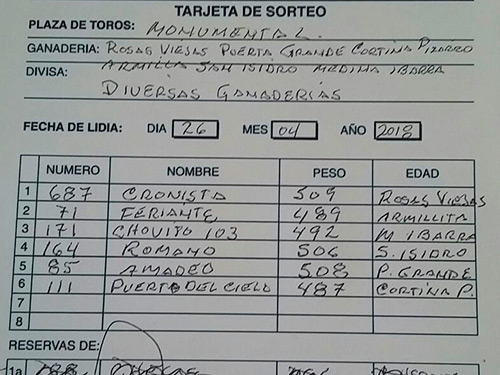 TARJETA DE SORTEO
PLAZA DE TOROS: MONUMENTAL
GANADERIA: ROSAS VIEJAS PUERTA GRANDE CORTINA PIZARRO
DIVISA: ARMILLA SAN ISIDRO MEDINA IBARRA
DIVERSAS GANADERÍAS
FECHA DE LIDIA: DIA 26 MES 04 AÑO 2018
NUMERO NOMBRE PESO EDAD
1 687 CRONISTA 509 ROSAS VIEJAS
2 71 FERIANTE 489 ARMILLITA
3 171 CHOUITO 103 492 M IBARRA
4 164 ROMANO 506 S. ISIDRO
5 85 AMADEO 508 P. GRANDE
6 111 PUERTO DEL CIELO 487 CORTINA P.
7
8
RESERVAS DE:
1a